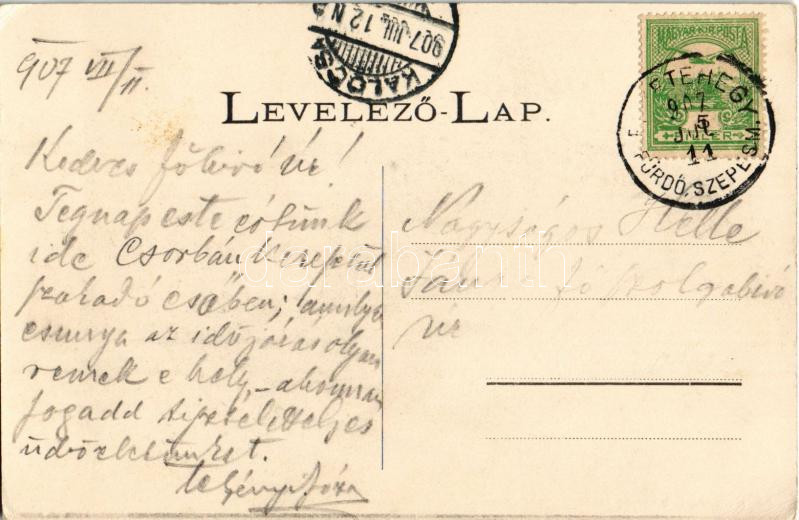 907 VII/11.
KALOCSA
907 JUL 12 N
MAGYAR KIR. POSTA
5
FILLÉR
FEKETEHEGY
907 JUL 11
FÜRDŐ. SZEPESM.
LEVELEZŐ-LAP.
Kedves főbíró úr!
Tegnap este értünk
ide Csorbán keresztül
szakadó esőben; amilyen
csunya az időjárás olyan
remek e hely, – ahonnan
fogadd tiszteletteljes
üdvözletünket.
Nagyságos Helle
János főszolgabíró
úr
darabanth